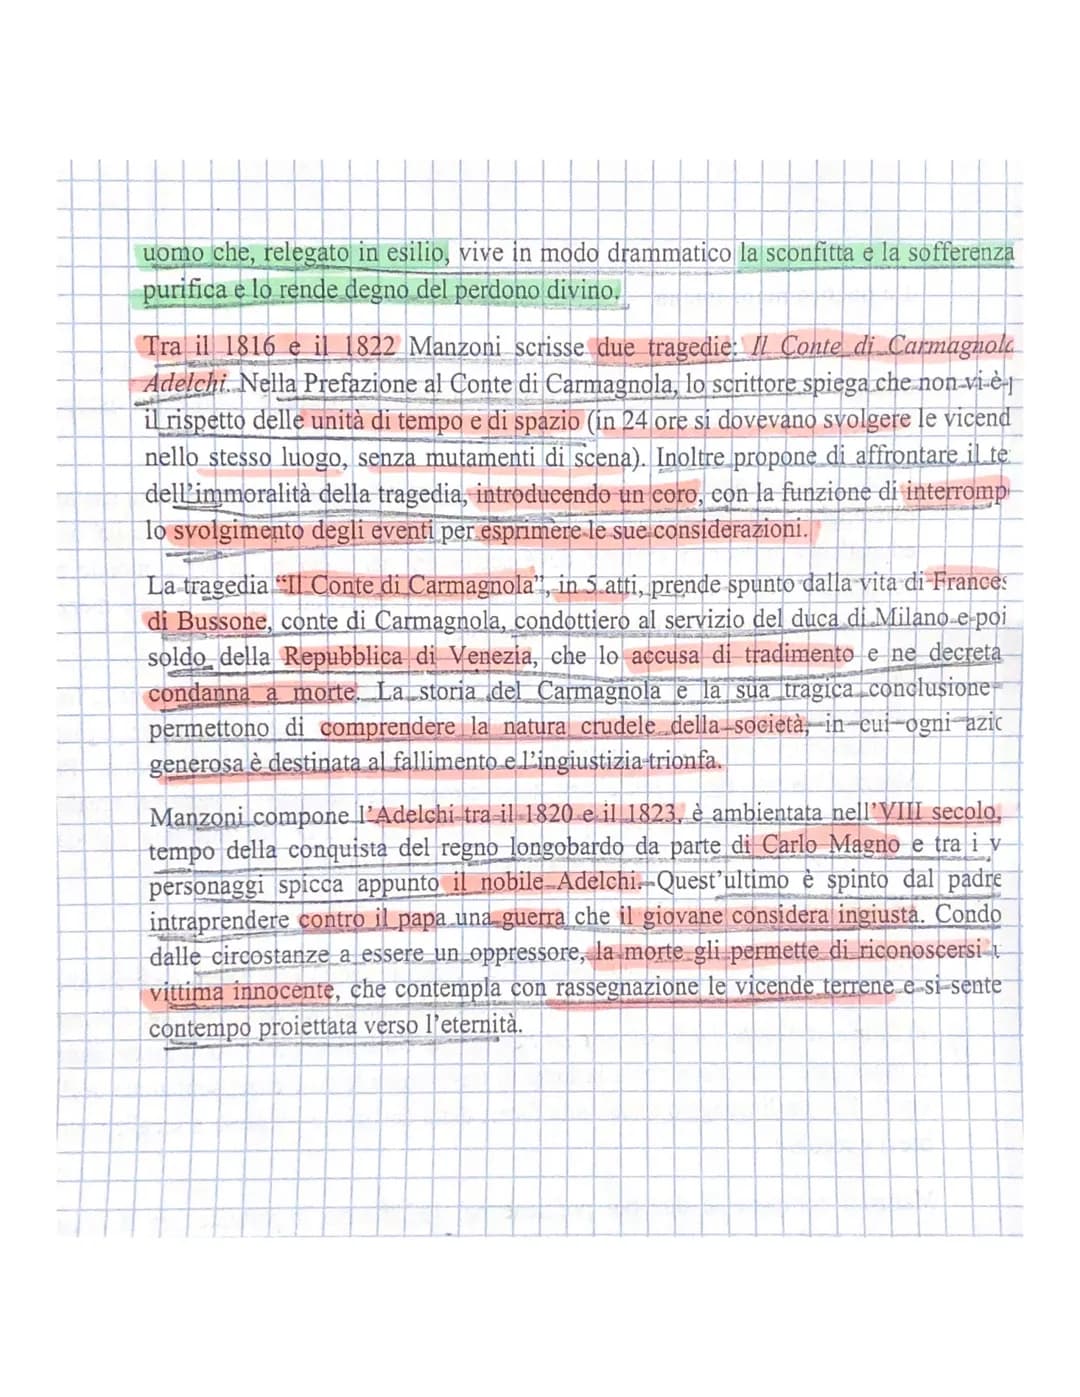 uomo che, relegato in esilio, vive in modo drammatico la sconfitta e la sofferenza
purifica e lo rende degno del perdono divino.
Tra il 1816 e il 1822 Manzoni scrisse due tragedie: Il Conte di Carmagnola
Adelchi. Nella Prefazione al Conte di Carmagnola, lo scrittore spiega che non vi è
il rispetto delle unità di tempo e di spazio (in 24 ore si dovevano svolgere le vicend
nello stesso luogo, senza mutamenti di scena). Inoltre propone di affrontare il te
dell'immoralità della tragedia, introducendo un coro, con la funzione di interromp
lo svolgimento degli eventi per esprimere le sue considerazioni.
La tragedia “Il Conte di Carmagnola”, in 5 atti, prende spunto dalla vita di Frances
di Bussone, conte di Carmagnola, condottiero al servizio del duca di Milano e poi
soldo della Repubblica di Venezia, che lo accusa di tradimento e ne decreta
condanna a morte. La storia del Carmagnola e la sua tragica conclusione
permettono di comprendere la natura crudele della società, in cui ogni azio
generosa è destinata al fallimento e l'ingiustizia trionfa.
Manzoni compone l'Adelchi tra il 1820 e il 1823, è ambientata nell'VIII secolo,
tempo della conquista del regno longobardo da parte di Carlo Magno e tra i v
personaggi spicca appunto il nobile Adelchi. Quest'ultimo è spinto dal padre
intraprendere contro il papa una guerra che il giovane considera ingiusta. Condo
dalle circostanze a essere un oppressore, la morte gli permette di riconoscersi
vittima innocente, che contempla con rassegnazione le vicende terrene e si sente
contempo proiettata verso l'eternità.